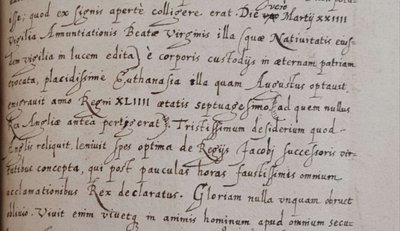 esse; quod ex signis apertè colligere erat. Die Martij XXIIII
vigilia Annuntiationis Beatæ Virginis illa (quæ Natiuitatis eius-
dem vigilia in lucem edita) è corporis custodijs in æternam patriam
euocata, placidissimè Euthanasia illa quam Augustus optauit,
emigrauit anno Regni XLIIII ætatis septuagesimo, ad quem nullus
Rex Angliæ antea pertigerat. Tristissimum desiderium quod
Anglis reliquit, leniuit spes optima de Regijs Jacobi successoris vir-
tutibus concepta, qui post pauculas horas faustissimis omnium
acclamationibus Rex declaratus. Gloriam nulla vnquam obruet
obliuio. Viuit enim viuetq in animis hominum apud omnium secu-